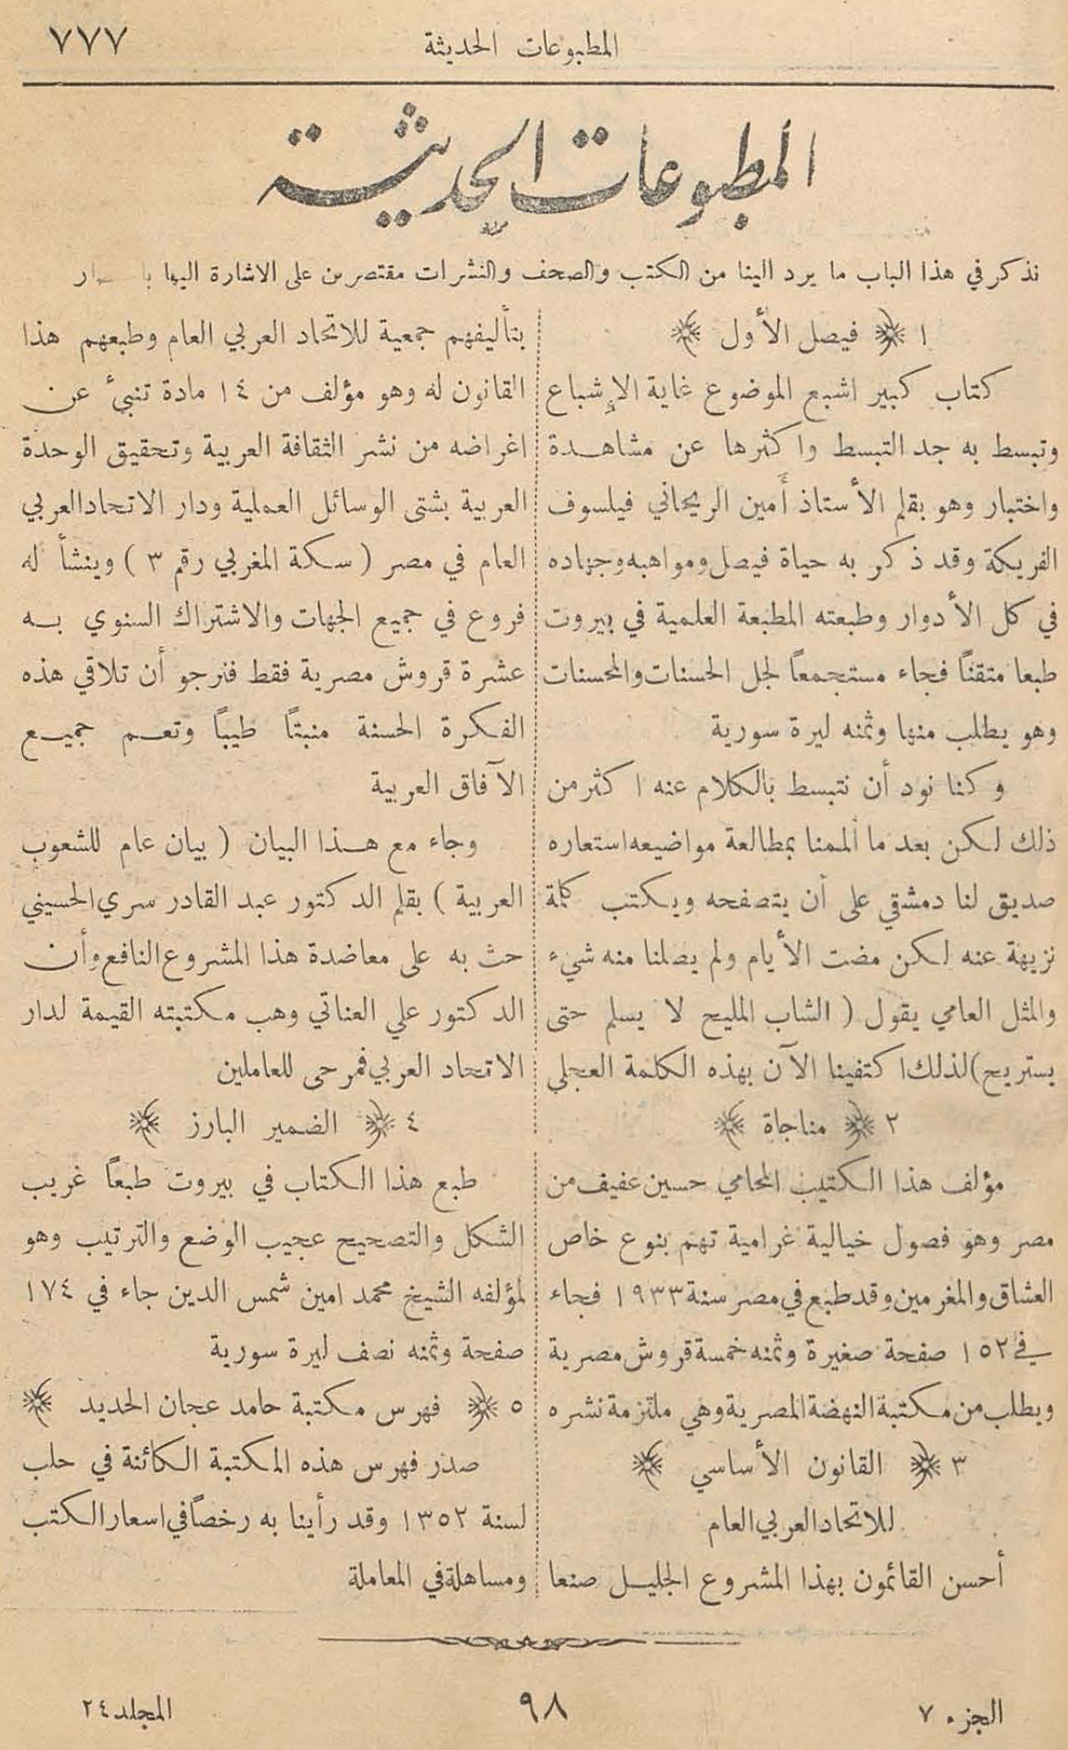 المطبوعات الحديثة
٧٧٧
المطبوعات الحديثة
نذكر في هذا الباب ما يرد الينا من الكتب والصحف والنشرات مقتصرين على الاشارة اليها
١ ﴿ فيصل الأول ﴾
كتاب كبير اشبع الموضوع غاية الإشباع
وتبسط به جد التبسط واكثرها عن مشاهدة
واختبار وهو بقلم الأستاذ أمين الريحاني فيلسوف
الفريكة وقد ذكر به حياة فيصل ومواهبه وجهاده
في كل الأدوار وطبعته المطبعة العلمية في بيروت
طبعا متقناً فجاء مستجمعاً لجل الحسنات والمحسنات
وهو يطلب منها وثمنه ليرة سورية
وكنا نود أن نتبسط بالكلام عنه اكثر من
ذلك لكن بعد ما ألممنا بمطالعة مواضيعه استعاره
صديق لنا دمشقي على أن يتصفحه ويكتب كلمة
نزيهة عنه لكن مضت الأيام ولم يصلنا منه شيء
والمثل العامي يقول ( الشاب المليح لا يسلم حتى
يستريح) لذلك اكتفينا الآن بهذه الكلمة العجلى
٢ ﴿ مناجاة ﴾
مؤلف هذا الكتيب المحامي حسين عفيف من
مصر وهو فصول خيالية غرامية تهم بنوع خاص
العشاق والمغرمين وقد طبع في مصر سنة ١٩٣٣ فجاء
في ١٥٢ صفحة صغيرة وثمنه خمسة قروش مصرية
ويطلب من مكتبة النهضة المصرية وهي ملتزمة نشره
٣ ﴿ القانون الأساسي ﴾
للاتحاد العربي العام
أحسن القائمون بهذا المشروع الجليل صنعا
بتأليفهم جمعية للاتحاد العربي العام وطبعهم هذا
القانون له وهو مؤلف من ١٤ مادة تنبئ عن
اغراضه من نشر الثقافة العربية وتحقيق الوحدة
العربية بشتى الوسائل العملية ودار الاتحاد العربي
العام في مصر ( سكة المغربي رقم ٣ ) وينشأ له
فروع في جميع الجهات والاشتراك السنوي به
عشرة قروش مصرية فقط فنرجو أن تلاقي هذه
الفكرة الحسنة منبتاً طيباً وتعم جميع
الآفاق العربية
وجاء مع هذا البيان ( بيان عام للشعوب
العربية ) بقلم الدكتور عبد القادر سري الحسيني
حث به على معاضدة هذا المشروع النافع وأن
الدكتور علي العناتي وهب مكتبته القيمة لدار
الاتحاد العربي فمرحى للعاملين
٤ ﴿ الضمير البارز ﴾
طبع هذا الكتاب في بيروت طبعاً غريب
الشكل والتصحيح عجيب الوضع والترتيب وهو
لمؤلفه الشيخ محمد امين شمس الدين جاء في ١٧٤
صفحة وثمنه نصف ليرة سورية
٥ ﴿ فهرس مكتبة حامد عجان الحديد ﴾
صدر فهرس هذه المكتبة الكائنة في حلب
لسنة ١٣٥٢ وقد رأينا به رخصاً في اسعار الكتب
ومساهلة في المعاملة
الجزء ٧
٩٨
المجلد ٢٤